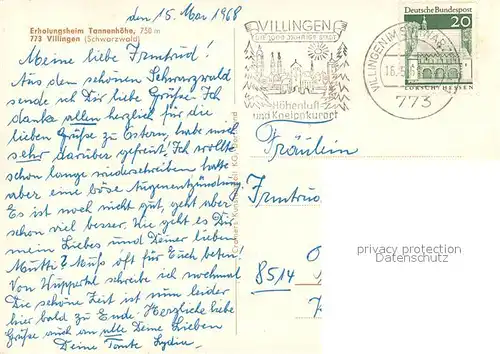 den 15. Mai 1968
Erholungsheim Tannenhöhe, 750 m
773 Villingen (Schwarzwald)
Meine liebe Irmtrud!
Aus dem schönen Schwarzwald
sende ich Dir liebe Grüße. Ich
danke allen herzlich für die
lieben Grüße zu Ostern, habe mich
sehr darüber gefreut. Ich wollte
schon lange wiederschreiben hatte
aber eine böse Augenentzündung.
Es ist noch nicht gut, geht aber
schon viel besser. Wie geht es Dir
mein Liebes und Deiner lieben
Mutti? Muß oft für Euch beten!
Von Wuppertal schreibe ich nochmal
Die schöne Zeit ist nun leider
hier bald zu Ende. Herzliche liebe
Grüße auch an alle Deine Lieben
Deine Tante Lydia
VILLINGEN
DIE 1000 JÄHRIGE STADT
Höhenluft-
und Kneippkurort
VILLINGEN IM SCHWARZ
773
Deutsche Bundespost
20
LORSCH/HESSEN
Fräulein
Irmtrud
8514
privacy protection
Personal Data